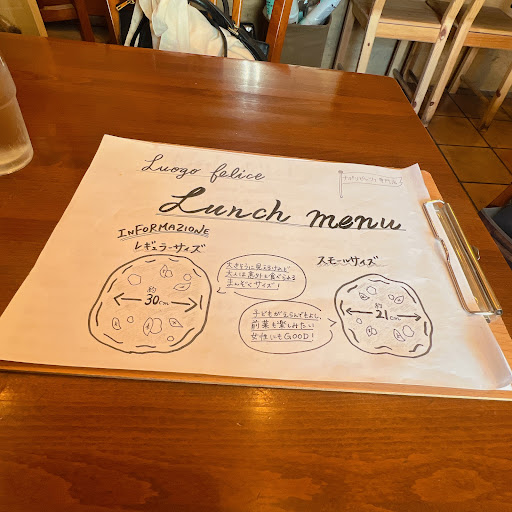 Luogo felice
ナポリピッツァ専門店
Lunch menu
INFORMAZIONE
レギュラーサイズ
約
30cm
大きそうに見えるけれど
大人は意外と食べられる
まんぞくサイズ!
スモールサイズ
約
21cm
子どもがえらんでもよし、
前菜も楽しみたい
女性にもGOOD!